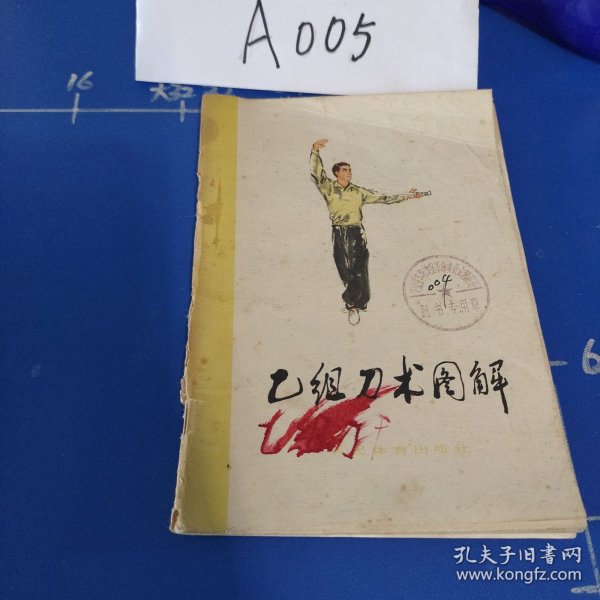 A005
16
大32
004
图书专用章
乙组刀术图解
体育出版社
6
孔夫子旧书网
www.kongfz.com